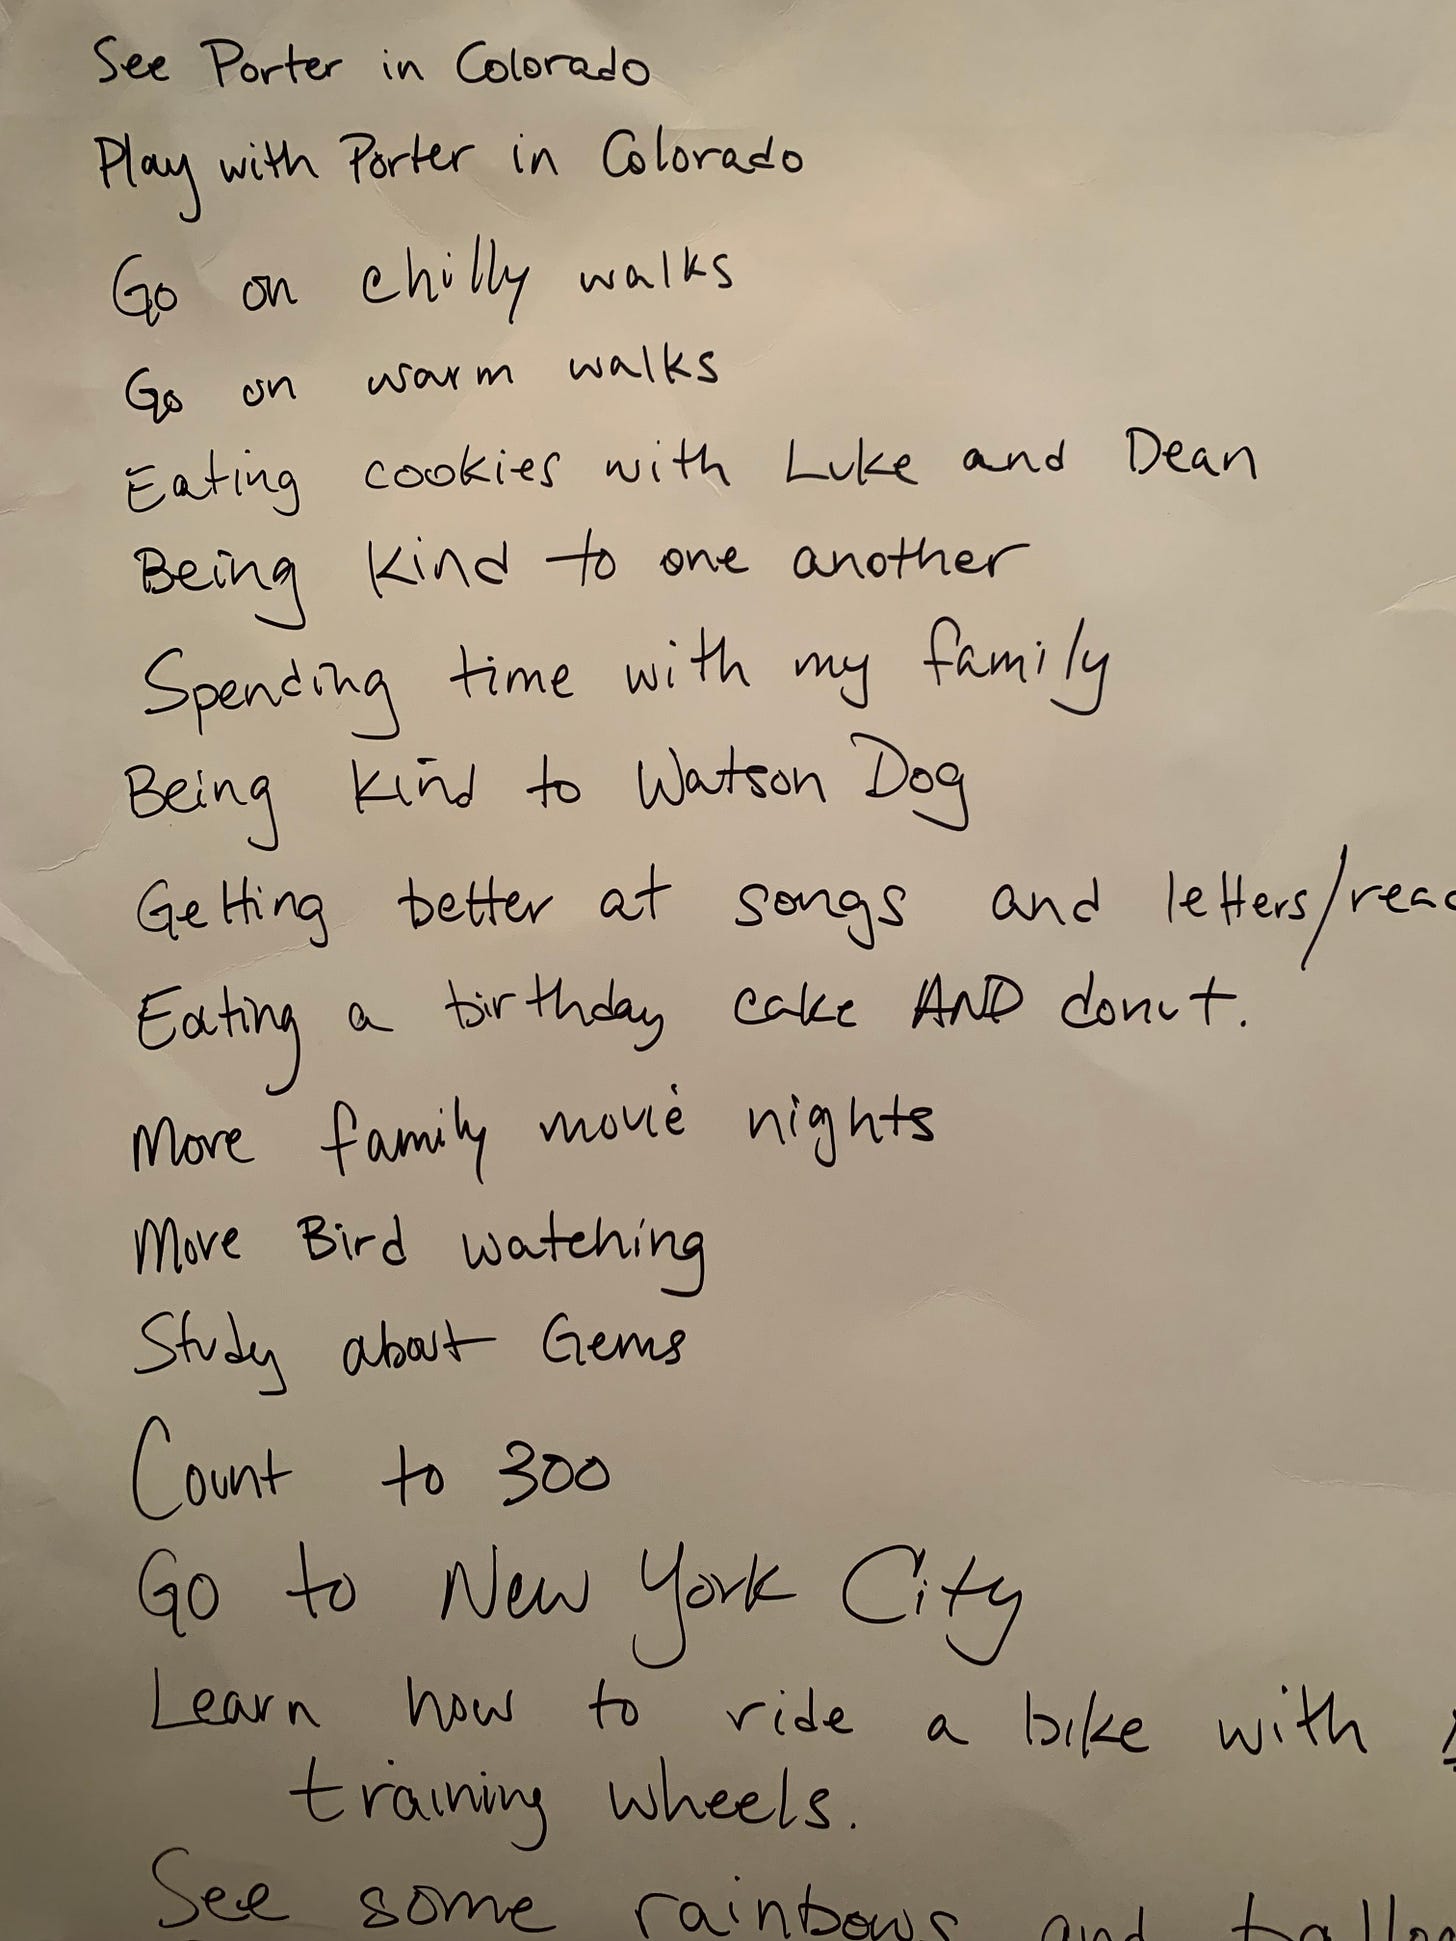 See Porter in Colorado
Play with Porter in Colorado
Go on chilly walks
Go on warm walks
Eating cookies with Luke and Dean
Being kind to one another
Spending time with my family
Being kind to Watson Dog
Getting better at songs and letters/
Eating a birthday cake AND donut.
More family movie nights
More Bird watching
Study about Gems
Count to 300
Go to New York City
Learn how to ride a bike with
training wheels.
See some rainbows and